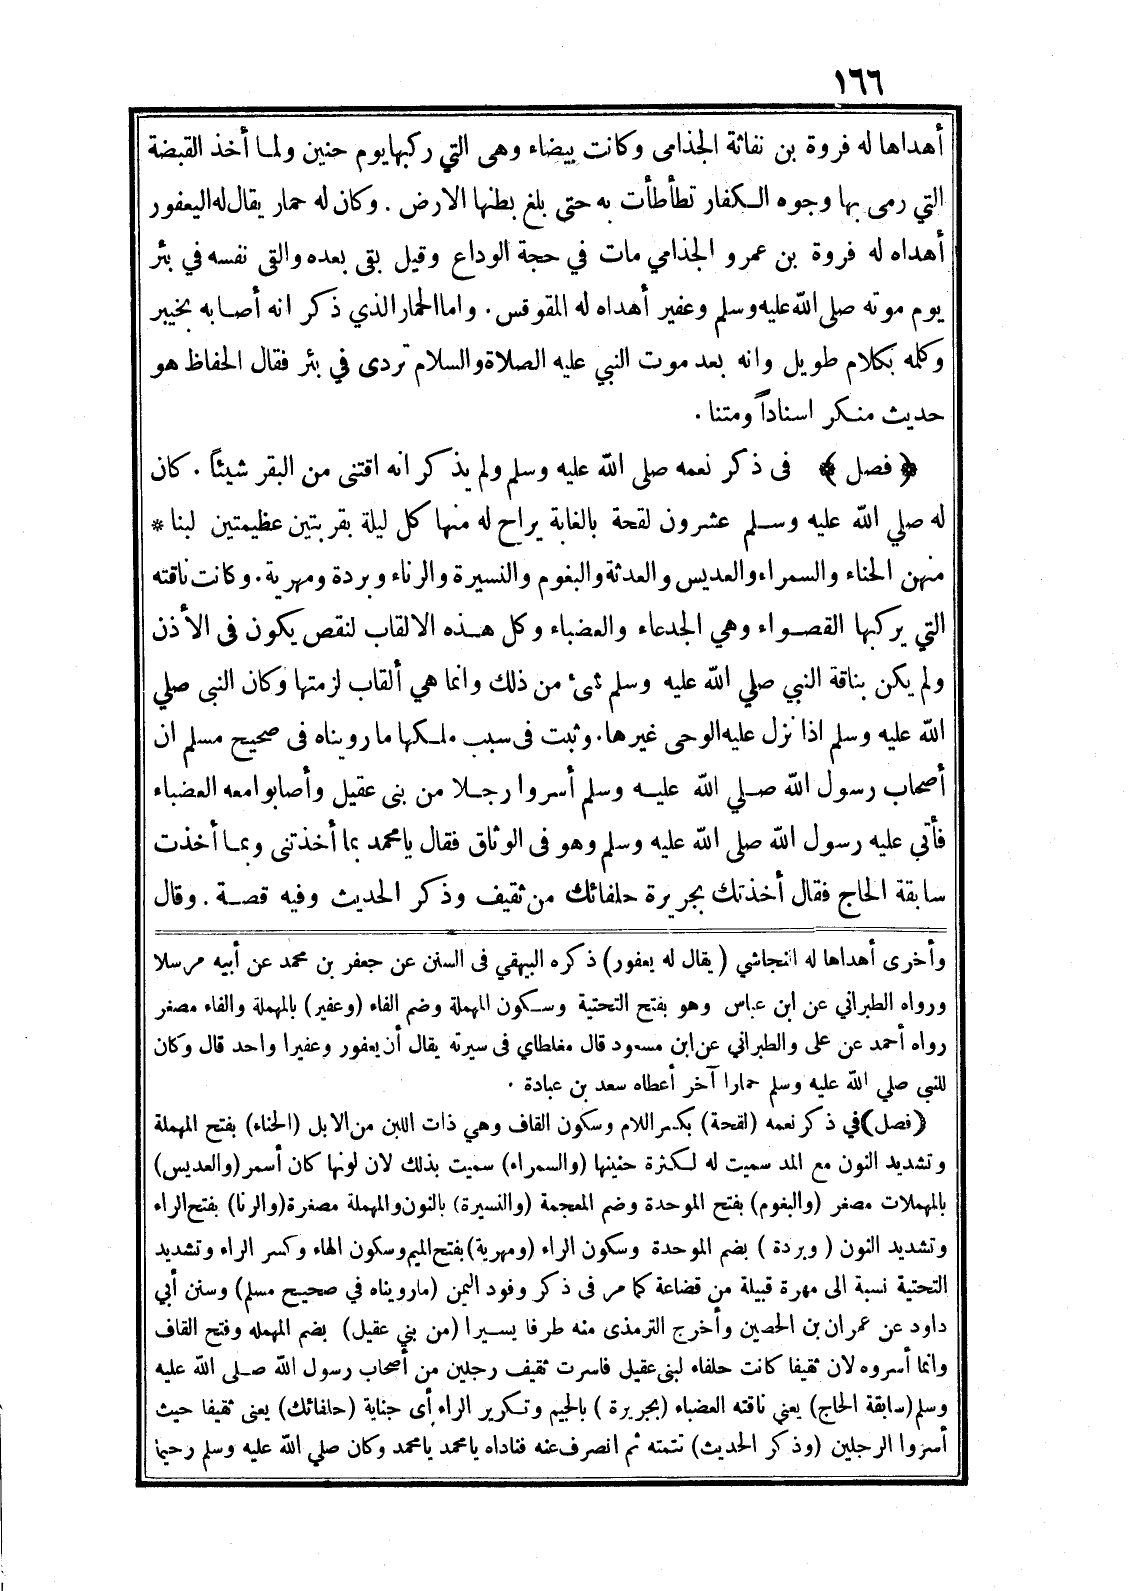 ١٦٦
أهداها له فروة بن نفاثة الجذامى وكانت بيضاء وهى التي ركبها يوم حنين ولمـا أخذ القبضة
التي رمى بها وجوه الـكفار تطأطأت به حتى بلغ بطنها الارض . وكان له حمار يقال له اليعفور
أهداه له فروة بن عمرو الجذامي مات في حجة الوداع وقيل بقى بعده والقى نفسه في بئر
يوم موته صلى الله عليه وسلم وعفير أهداه له المقوقس . واما الحمار الذي ذكر انه أصـابه بخيبر
وكلمه بكلام طويل وانه بعد موت النبي عليه الصلاة والسلام تردى في بئر فقال الحفاظ هو
حديث منـكر اسناداً ومتنا .
﴿ فصل ﴾ فى ذكر نعمه صلى الله عليه وسلم ولم يذكر انه اقتنى من البقر شيئاً . كان
له صلي الله عليه وسـلم عشرون لقحة بالغابة يراح له منها كل ليلة بقربتين عظيمتين لبنا *
منهن الحناء والسمراء والعديس والعدثة والبغوم والنسيرة والرناء وبردة ومهرية . وكانت ناقته
التي يركبها القصـواء وهي الجدعاء والعضباء وكل هـذه الالقاب لنقص يكون فى الأذن
ولم يكن بناقة النبي صلي الله عليه وسلم شىء من ذلك وانما هي ألقاب لزمتها وكان النبى صلي
الله عليه وسلم اذا نزل عليه الوحى غيرها . وثبت فى سبب ملـكها ما رويناه فى صحيح مسلم ان
أصحاب رسول الله صـلي الله عليـه وسلم أسروا رجـلا من بنى عقيل وأصابوا معه العضباء
فأتي عليه رسول الله صلى الله عليه وسلم وهو فى الوثاق فقال يا محمد بما أخذتنى وبمـا أخذت
سابقة الحاج فقال أخذتك بجريرة حلفائك من ثقيف وذكر الحديث وفيه قصـة . وقال
وأخرى أهداها له النجاشي ( يقال له يعفور) ذكره البيهقي فى السنن عن جعفر بن محمد عن أبيه مرسلا
ورواه الطبراني عن ابن عباس وهو بفتح التحتية وسـكون المهملة وضم الفاء (وعفير) بالمهملة والفاء مصغر
رواه أحمد عن على والطبراني عن ابن مسعود قال مغلطاي فى سيرته يقال أن يعفور وعفيرا واحد قال وكان
للنبي صلي الله عليه وسلم حمارا آخر أعطاه سعد بن عبادة .
(فصل) في ذكر نعمه (لقحة) بكسر اللام وسكون القاف وهي ذات اللبن من الابل (الحناء) بفتح المهملة
وتشديد النون مع المد سميت له لـكثرة حنينها (والسمراء) سميت بذلك لان لونها كان أسمر (والعديس)
بالمهملات مصغر (والبغوم) بفتح الموحدة وضم المعجمة (والنسيرة) بالنون والمهملة مصغرة (والرنا) بفتح الراء
وتشديد النون ( وبردة ) بضم الموحدة وسكون الراء (ومهرية) بفتح الميم وسكون الهاء وكسر الراء وتشديد
التحتية نسبة الى مهرة قبيلة من قضاعة كما مر فى ذكر وفود اليمن (ما رويناه في صحيح مسلم) وسنن أبي
داود عن عمران بن الحصين وأخرج الترمذى منه طرفا يسـيرا (من بني عقيل) بضم المهمله وفتح القاف
وانما أسروه لان ثقيفا كانت حلفاء لبنى عقيل فاسرت ثقيف رجلين من أصحاب رسول الله صـلى الله عليه
وسلم (سابقة الحاج) يعني ناقته العضباء (بجريرة ) بالجيم وتـكرير الراء أى جناية (حلفائك) يعنى ثقيفا حيث
أسروا الرجلين (وذكر الحديث) تتمته ثم انصرف عنه فناداه يا محمد يا محمد وكان صلي الله عليه وسلم رحيما